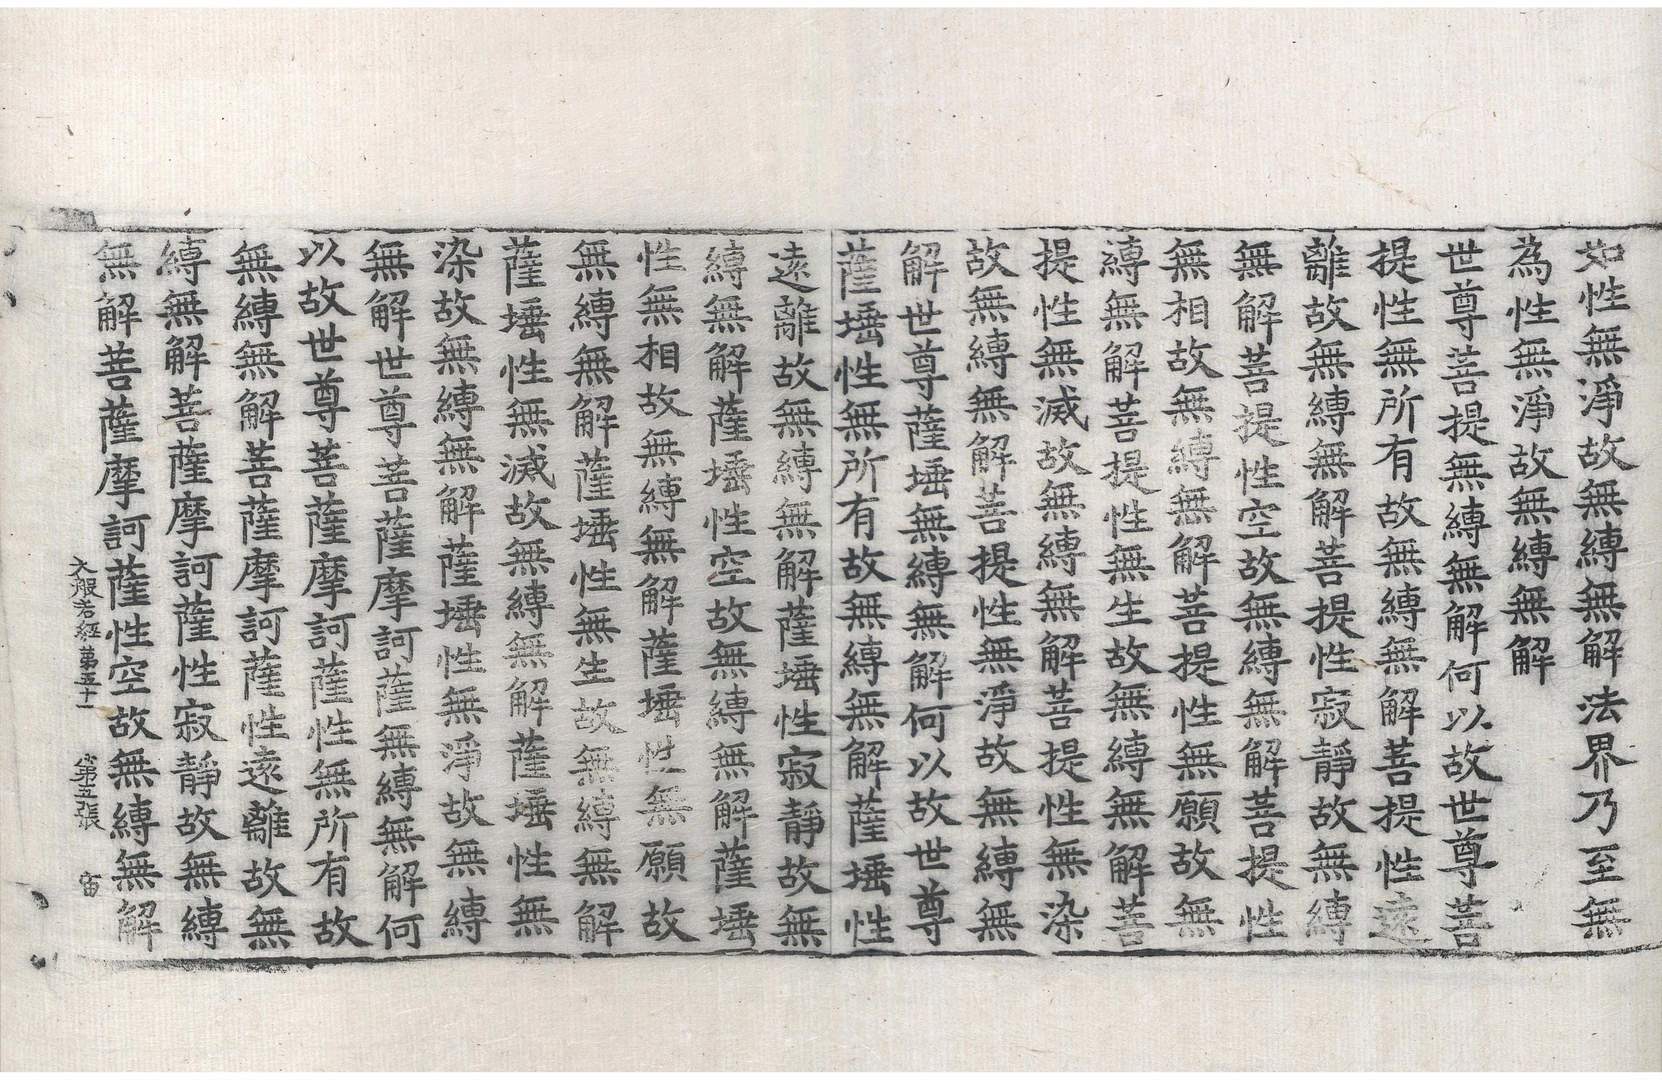 如性無淨故無縛無解法界乃至無
為性無淨故無縛無解
世尊菩提無縛無解何以故世尊菩
提性無所有故無縛無解菩提性遠
離故無縛無解菩提性寂靜故無縛
無解菩提性空故無縛無解菩提性
無相故無縛無解菩提性無願故無
縛無解菩提性無生故無縛無解菩
提性無滅故無縛無解菩提性無染
故無縛無解菩提性無淨故無縛無
解世尊薩埵無縛無解何以故世尊
薩埵性無所有故無縛無解薩埵性
遠離故無縛無解薩埵性寂靜故無
縛無解薩埵性空故無縛無解薩埵
性無相故無縛無解薩埵性無願故
無縛無解薩埵性無生故無縛無解
薩埵性無滅故無縛無解薩埵性無
染故無縛無解薩埵性無淨故無縛
無解世尊菩薩摩訶薩無縛無解何
以故世尊菩薩摩訶薩性無所有故
無縛無解菩薩摩訶薩性遠離故無
縛無解菩薩摩訶薩性寂靜故無縛
無解菩薩摩訶薩性空故無縛無解
大般若經第五十一 第五張 宙